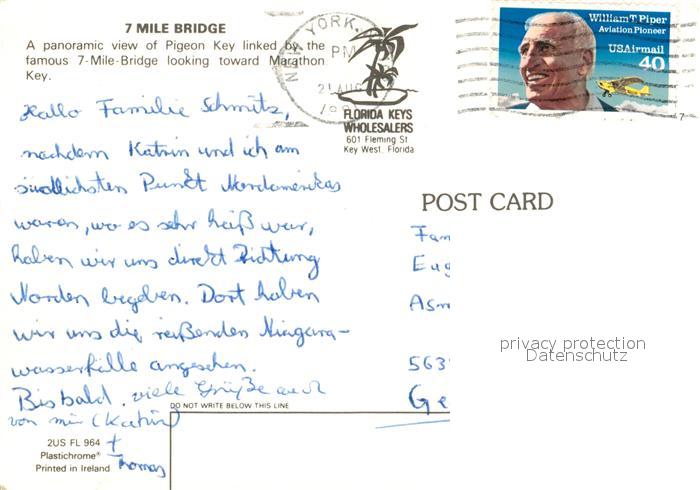 7 MILE BRIDGE
A panoramic view of Pigeon Key linked by the
famous 7-Mile-Bridge looking toward Marathon
Key.
NEW YORK,
PM
21 AUG
FLORIDA KEYS
WHOLESALERS
601 Fleming St.
Key West, Florida
William T Piper
Aviation Pioneer
USAirmail
40
Hallo Familie Schmitz,
nachdem Katrin und ich am
südlichsten Punkt Nordamerikas
waren, wo es sehr heiß war,
haben wir uns direkt Richtung
Norden begeben. Dort haben
wir uns die reißenden Niagara-
wasserfälle angesehen.
Bis bald. viele Grüße auch
von mir (Katrin)
+ Thomas
POST CARD
Fam
Eug
Asm
563
Ge
privacy protection
Datenschutz
DO NOT WRITE BELOW THIS LINE
2US FL 964
Plastichrome®
Printed in Ireland